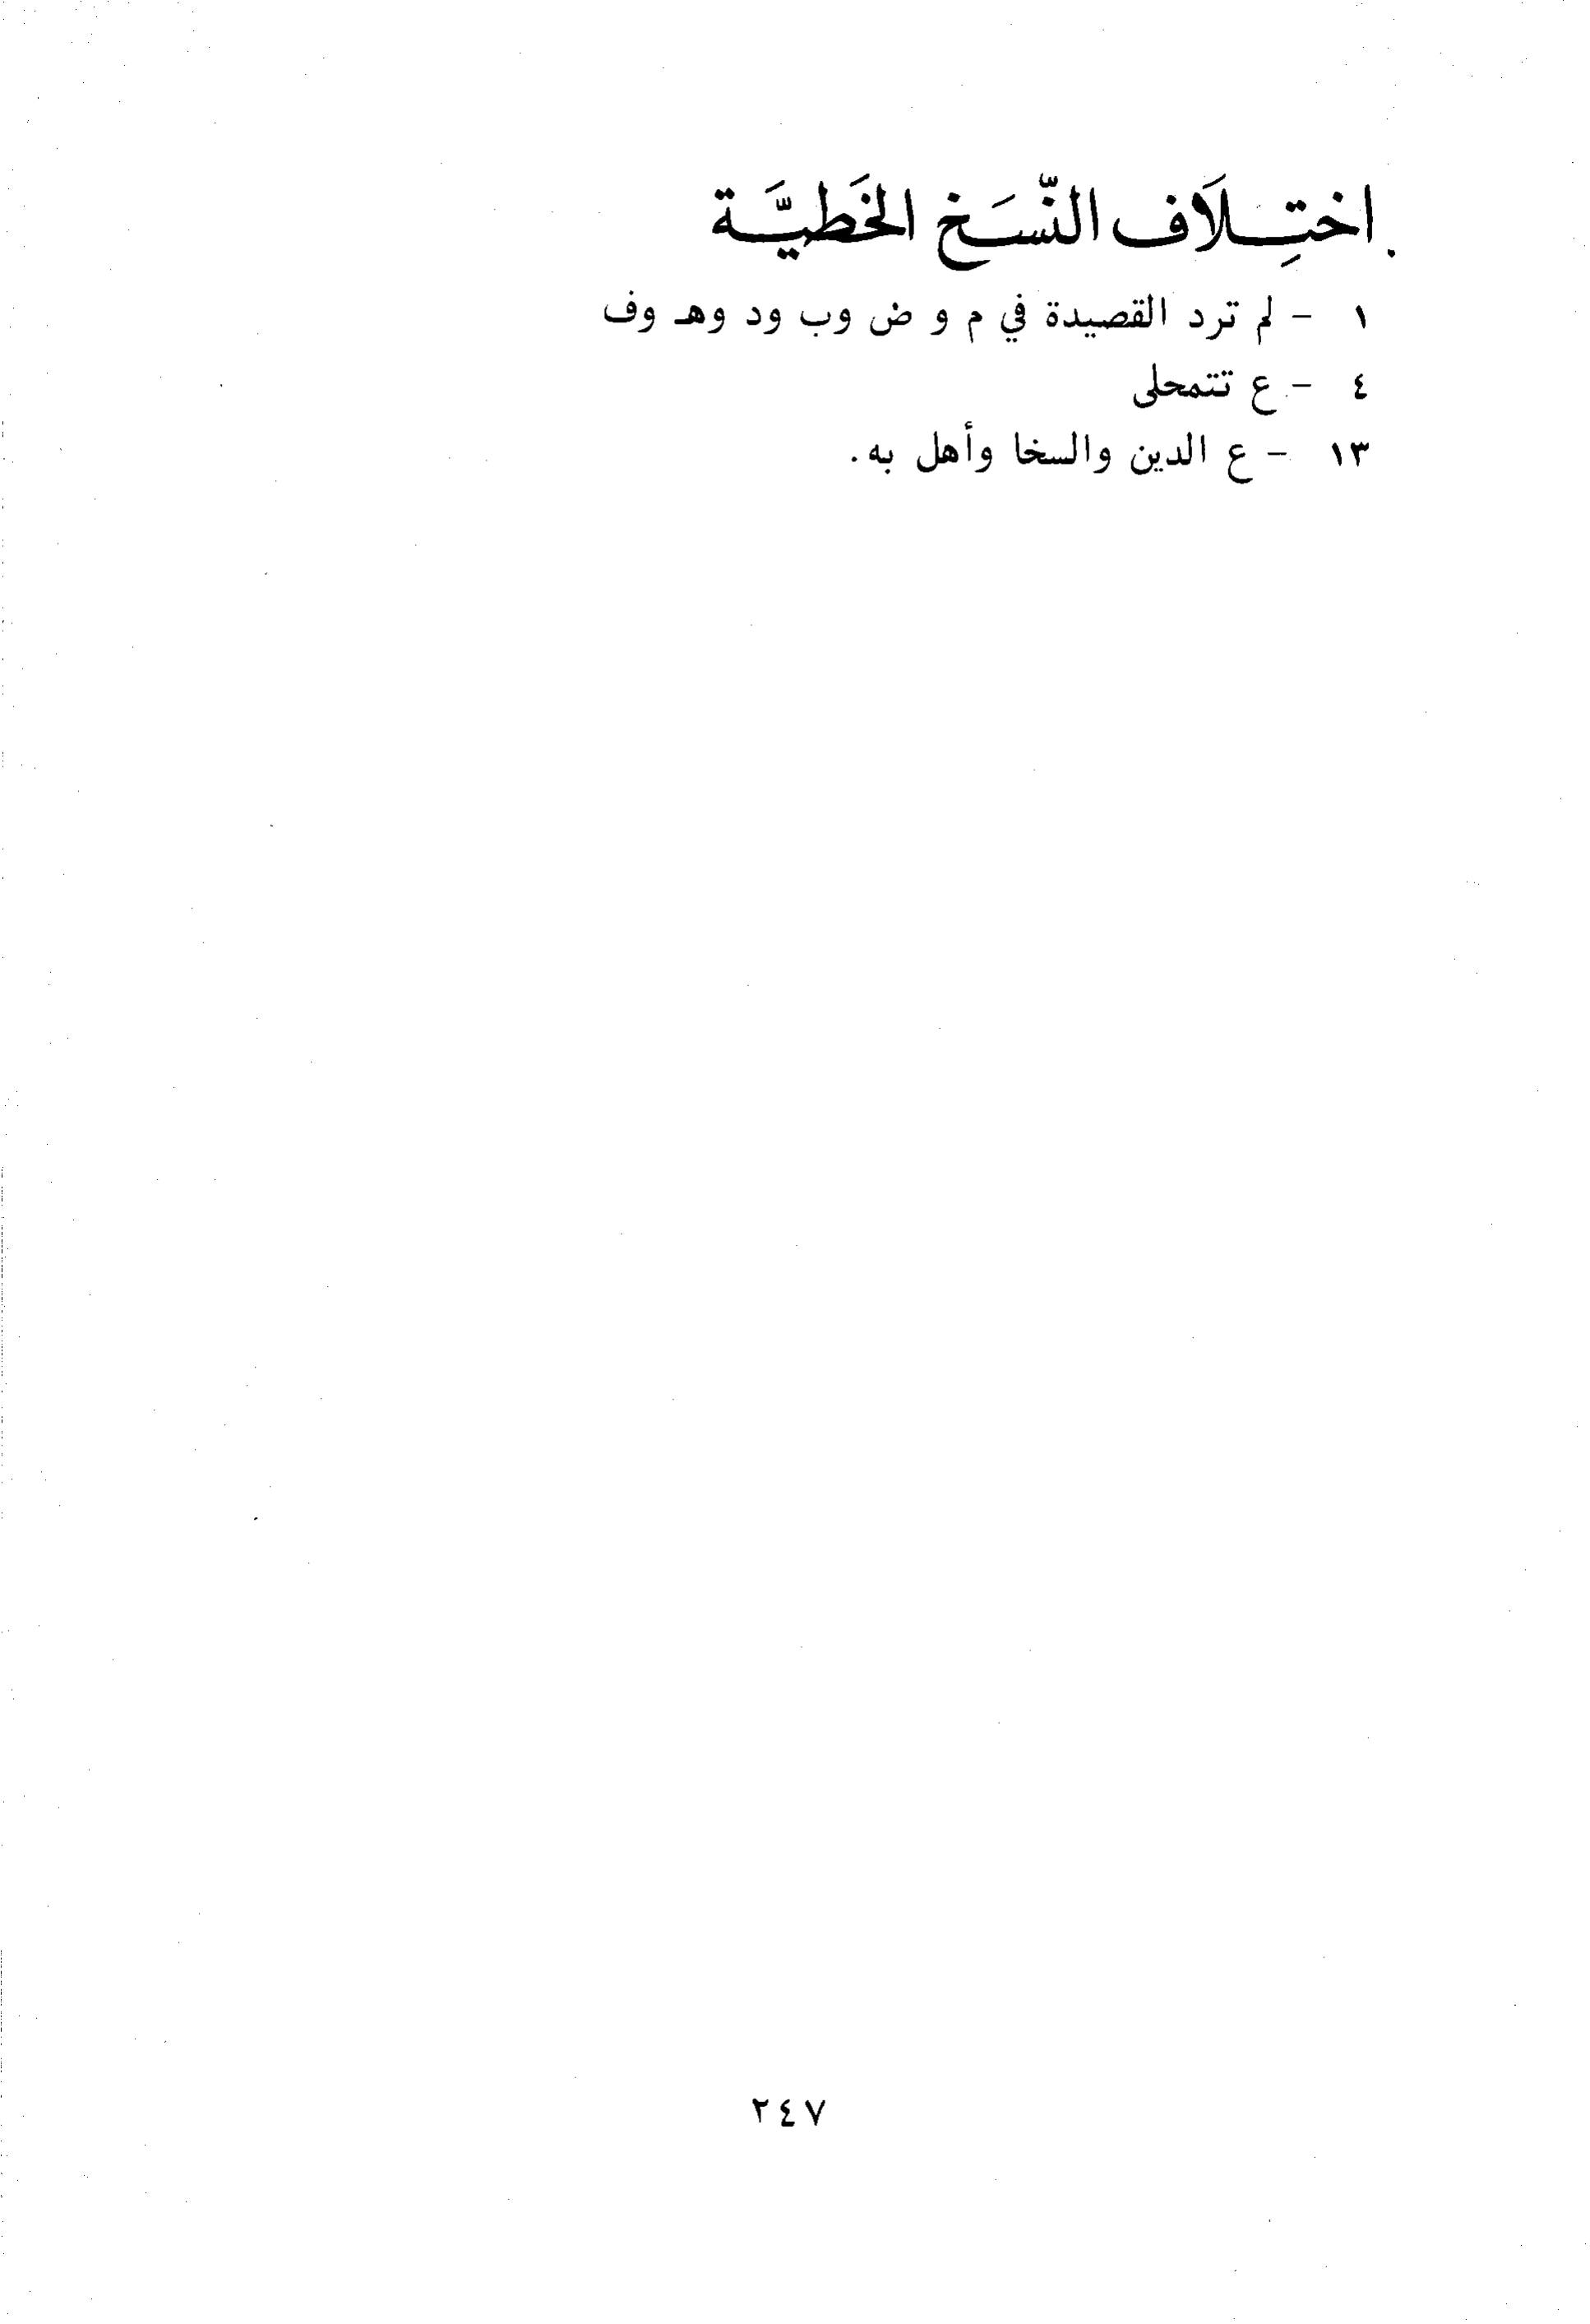 اختِلَاف النّسَخ الخَطيَّة
١ - لم ترد القصيدة في م و ض وب ود وهـ وف
٤ - ع تتمحلى
١٣ - ع الدين والسخا وأهل به.
٢٤٧